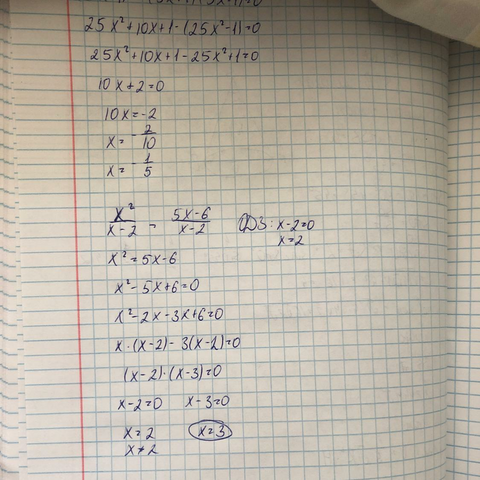 25x²+10x+1-(25x²-1)=0
25x²+10x+1-25x²+1=0
10x+2=0
10x=-2
x=-2/10
x=-1/5
x²/(x-2) = (5x-6)/(x-2) ОДЗ: x-2=0
x=2
x²=5x-6
x²-5x+6=0
x²-2x-3x+6=0
x·(x-2)-3(x-2)=0
(x-2)·(x-3)=0
x-2=0 x-3=0
x=2 x=3
x≠2